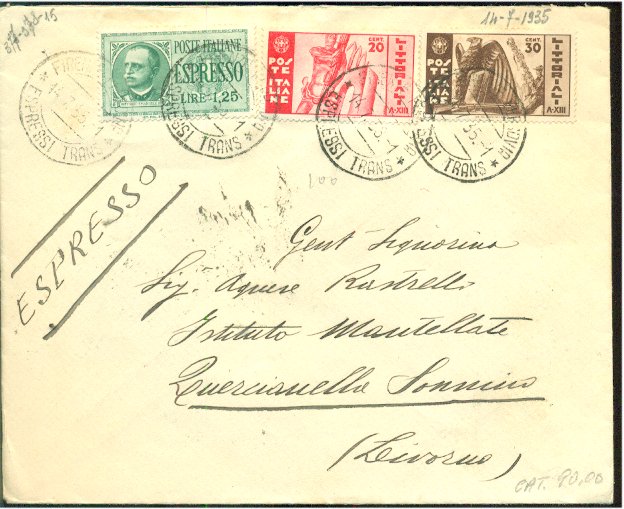 377-378-15
14-7-1935
POSTE ITALIANE
ESPRESSO
LIRE·1,25
POSTE ITALIANE
CENT. 20
LITTORIALI
A·XIII
POSTE ITALIANE
CENT. 30
LITTORIALI
A·XIII
ESPRESSI TRANS
ESPRESSI TRANS
ESPRESSI TRANS
ESPRESSI TRANS
100
ESPRESSO
Gent Signorina
Sig. Agnese Rastrelli
Istituto Mantellate
Quercianella Sonnino
(Livorno)
CAT. 90,00